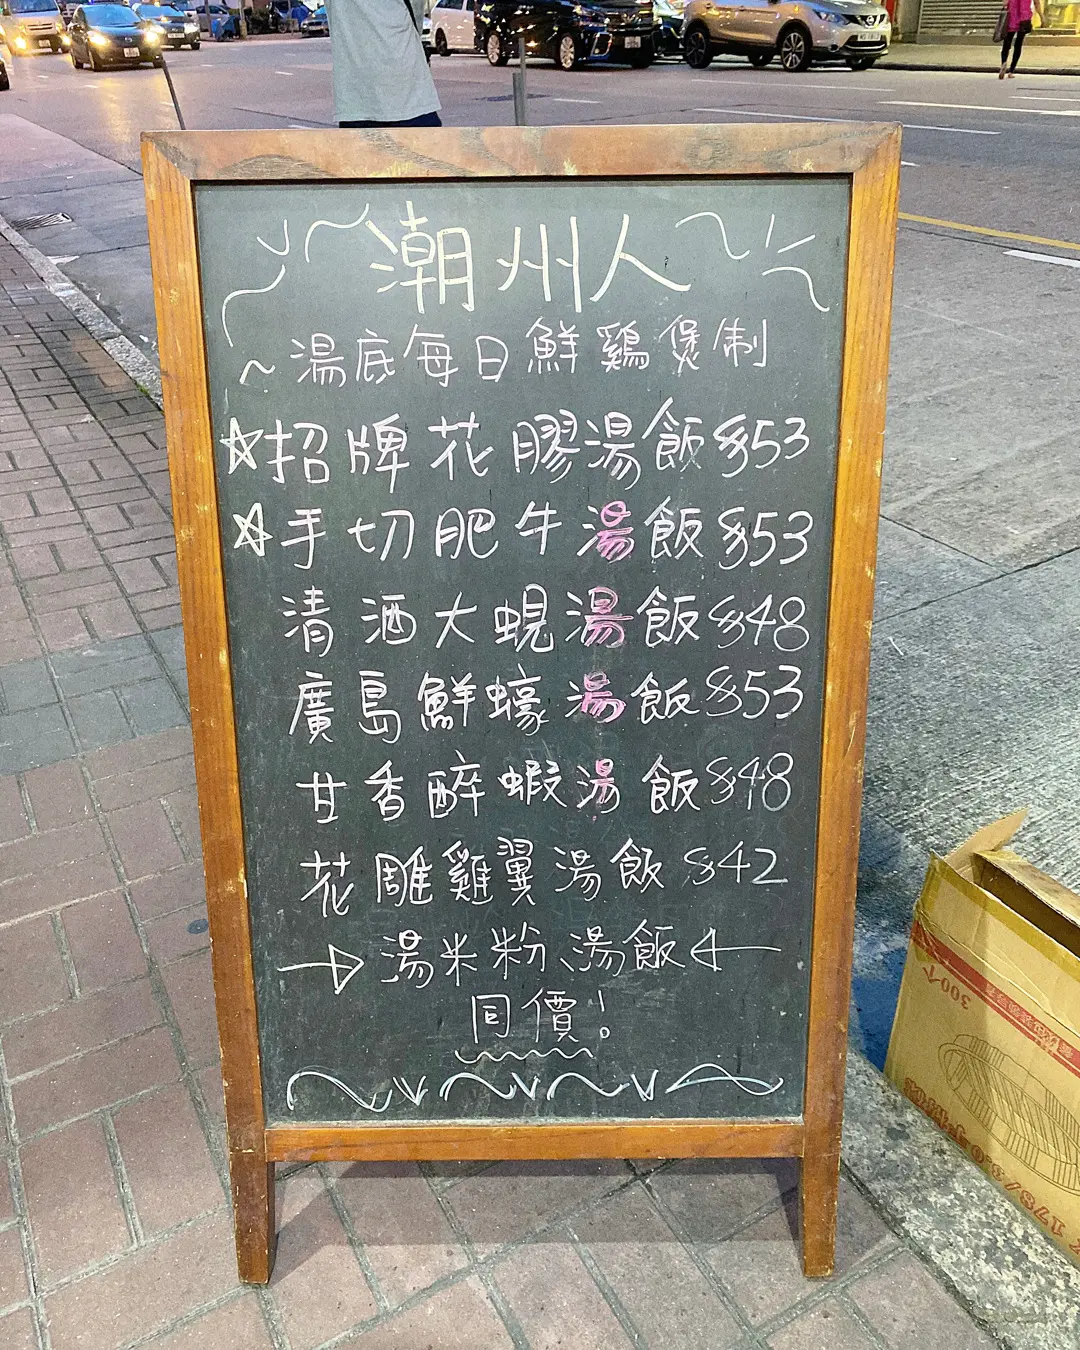 潮州人
~湯底每日鮮鷄煲制
☆招牌花膠湯飯$53
☆手切肥牛湯飯$53
清酒大蜆湯飯$48
廣島鮮蠔湯飯$53
甘香醉蝦湯飯$48
花雕雞翼湯飯$42
→湯米粉、湯飯←
同價!
300个